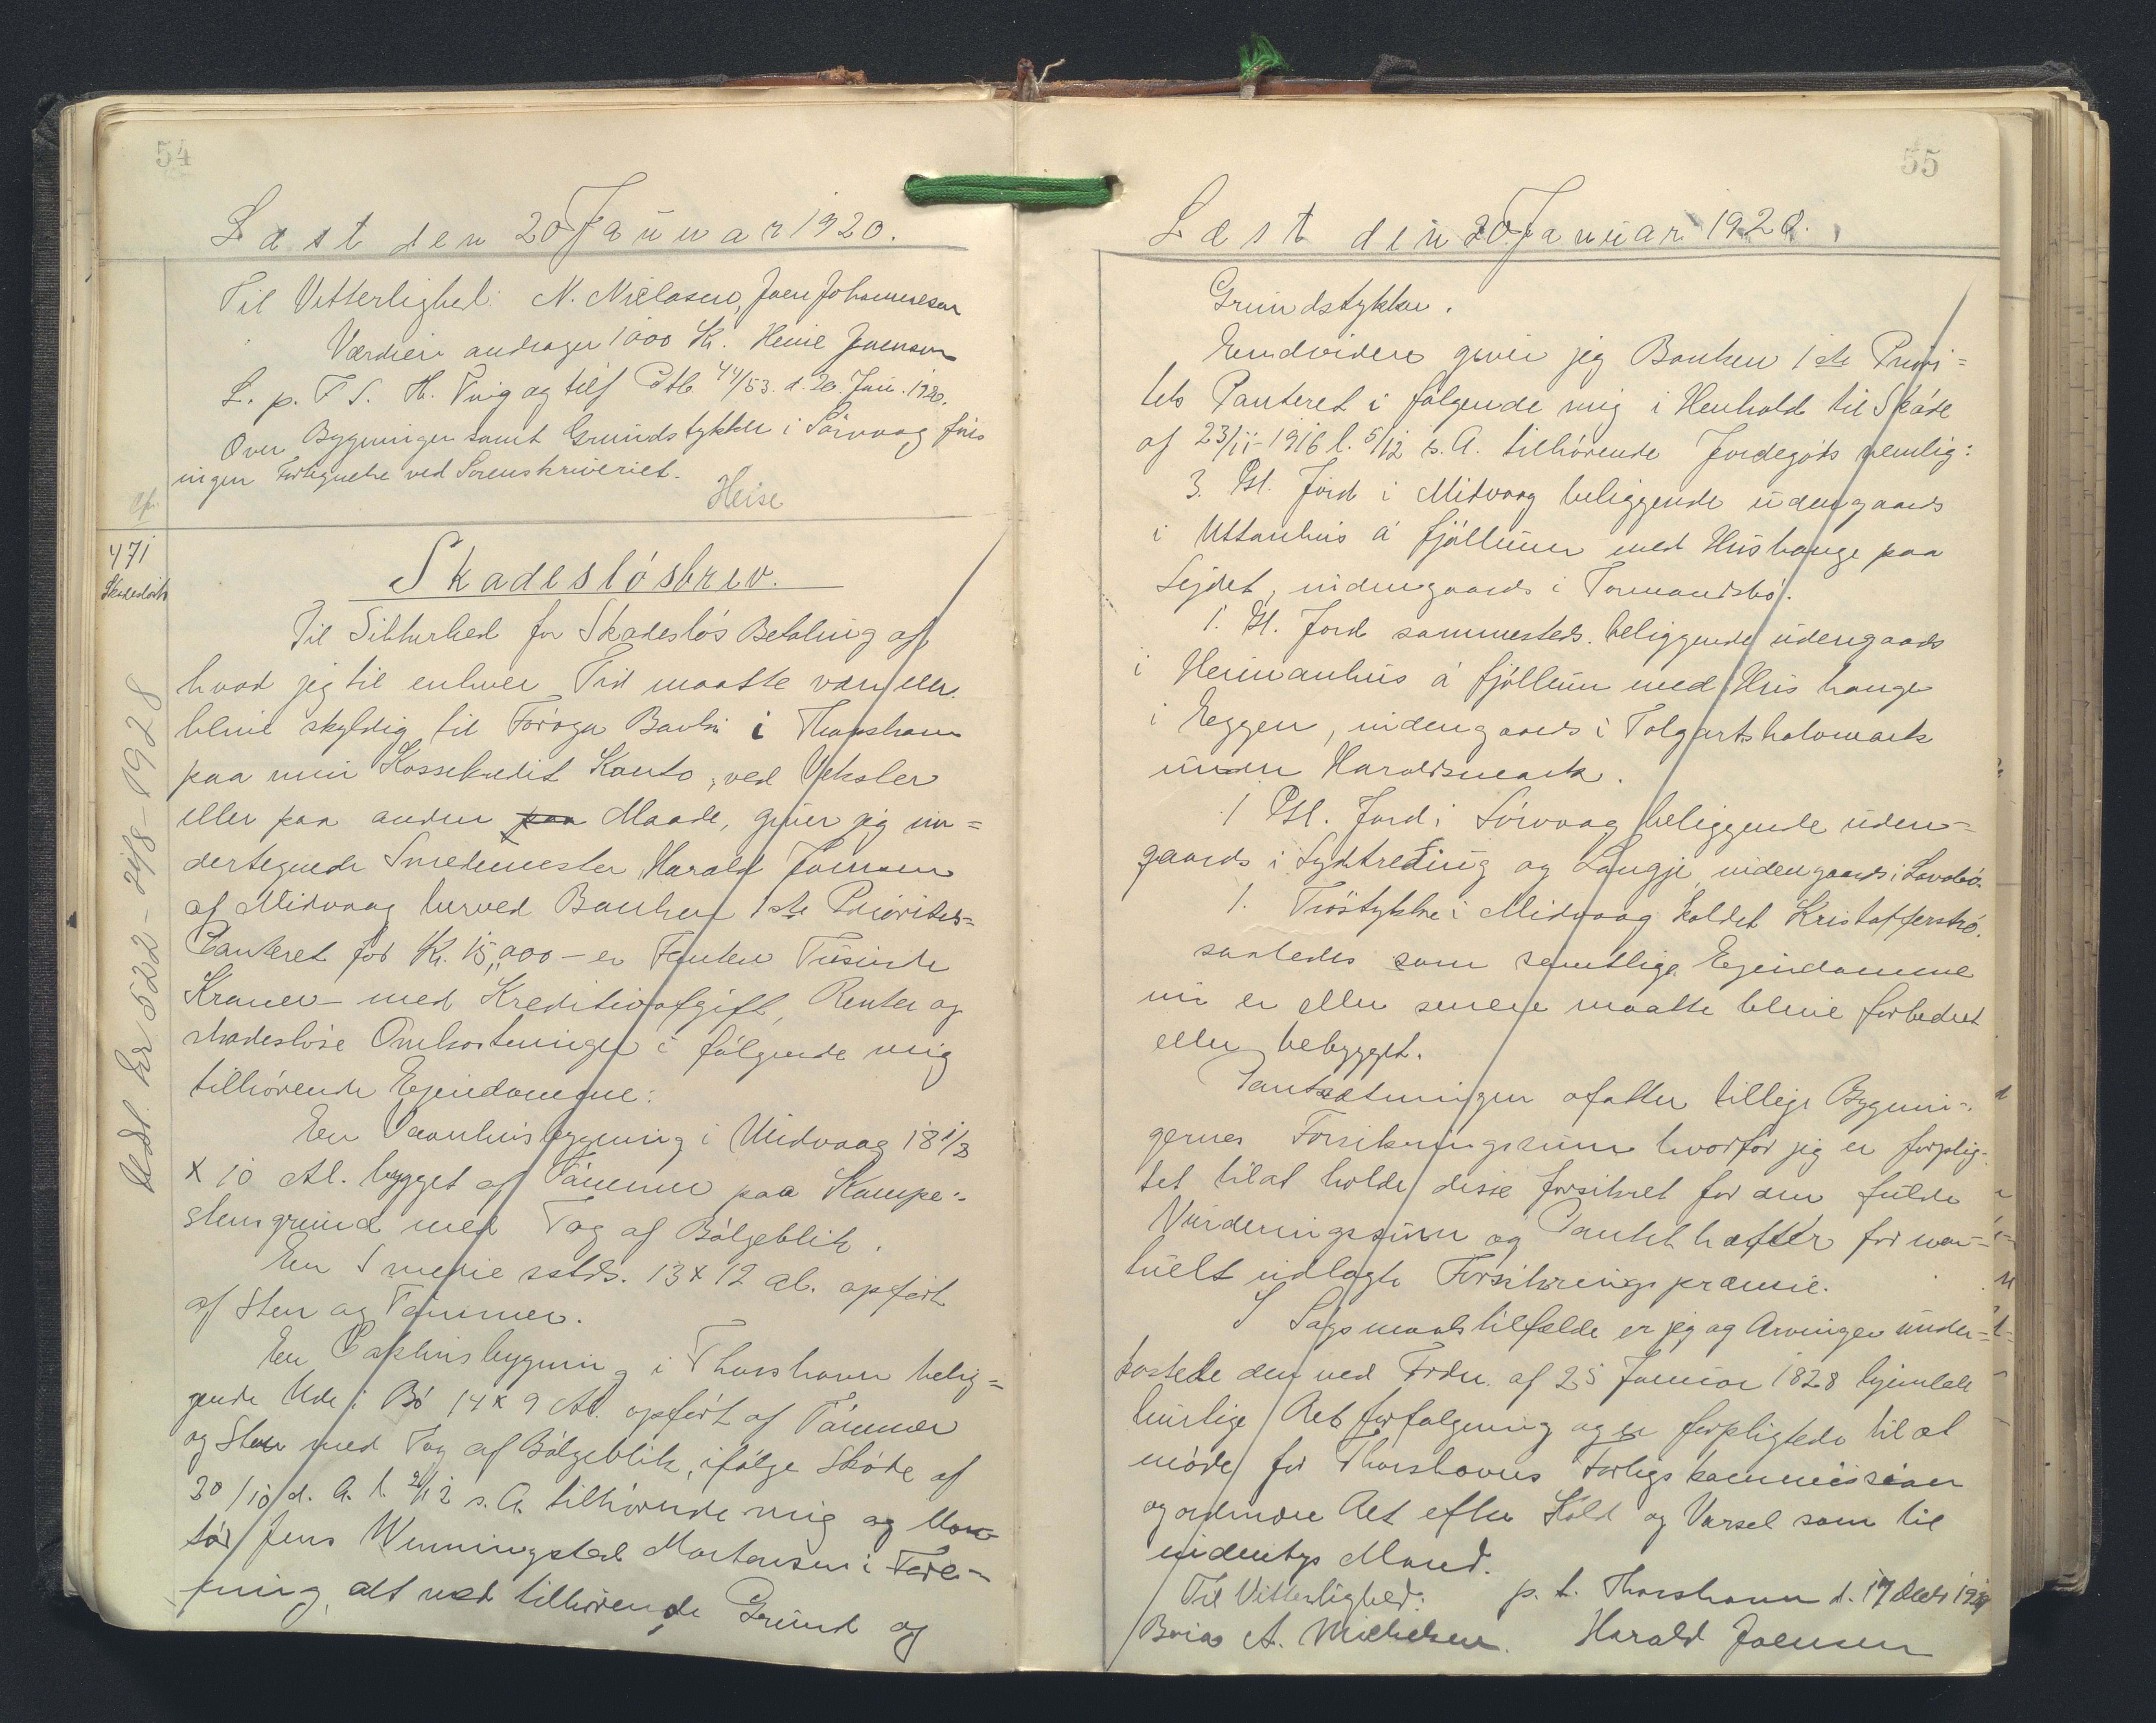 54
Læst den 20 Januar 1920.
Til Vitterlighed: N. Niclasen, Joen Johannesen
Værdien andrager 1000 Kr. Heine Joensen
L. p. F S. H. Tvig og tilf Ptb. 44/53. d. 20. Jan. 1920.
Over Bygninger samt Grundstykker i Sörvaag fins
ingen Fortegnelse ved Sorenskriveriet.
Heise
471
Skadeslösbrev.
Til Sikkerhed for Skadeslös Betaling af
hvad jeg til enhver Tid maatte være eller
blive skyldig til Föroya Banki i Thorshavn
paa min Kassekredit Konto, ved Veksler
eller paa anden paa Maade, giver jeg un=
dertegnede Smedemester Harald Joensen
af Midvaag herved Banken 1ste Prioritets=
Panteret for Kr. 15,000 – er Femten Tusinde
Kroner – med Kreditivafgift, Renter og
skadeslöse Omkostninger i fölgende mig
tilhörende Ejendomme:
En Vaanhusbygning i Midvaag 18 1/2
x 10 Al. bygget af Tömmer paa Kampe=
stensgrund med Tag af Bölgeblik.
En Smedie sstds. 13 x 12 al. opfört
af Sten og Tömmer.
En Pakhusbygning i Thorshavn belig=
gende Ude i Bö 14 x 9 Al. opfört af Tömmer
og Sten med Tag af Bölgeblik, ifölge Sköde af
30/10 d. A. l. 2/12 s. A. tilhörende mig og Mon
tör Jens Winningsted Mortensen i Fore=
ning, alt med tilhörende Grund og
Sledt. Lr 522 - 21/8 - 1928
55
Læst den 20 Januar 1920.
Grundstykker.
Endvidere giver jeg Banken 1ste Priori=
tets Panteret i fölgende mig i Henhold til Sköde
af 23/11-1916 l. 5/12 s. A. tilhörende Jordegods nemlig:
3. Gl. Jord i Midvaag beliggende udengaards
i Uttanhus á fjöllunum med Hushauge paa
Lejdet, indengaards i Tormandsbö.
1. Gl. Jord sammesteds beliggende udengaards
i Heimanhus á fjöllum med Hus hauge
i Eggen, indengaards i Tolgartshalvmark
under Haraldsmark.
1 Gl. Jord i Sörvaag beliggende uden=
gaards i Sydtreding og Langje, indengaards i
1. Tröstykke i Midvaag kaldet Kristofferströ.
saaledes som samtlige Ejendomme
nu er eller senere maatte blive forbedret
eller bebygget.
Pantsætningen ofatter tillige Bygnin=
gernes Forsikringssum hvorfor jeg er forplig=
tet til at holde disse forsikret for den fulde
Vurderingssum og Pantet hæfter for even=
tuelt udlagte Forsikringspræmie.
I Sagsmaalstilfælde er jeg og Arvinger under=
kastede den ved Frdn. af 25 Januar 1828 hjemlede
hurtige Retsforfölgning og er forpligtede til at
möde for Thorshavns Forligskommission
og ordinære Ret efter Kald og Varsel som til
indenbys Mand.
Til Vitterlighed: p. t. Thorshavn d. 17 Decbr 1919
A. Michelsen. Harald Joensen